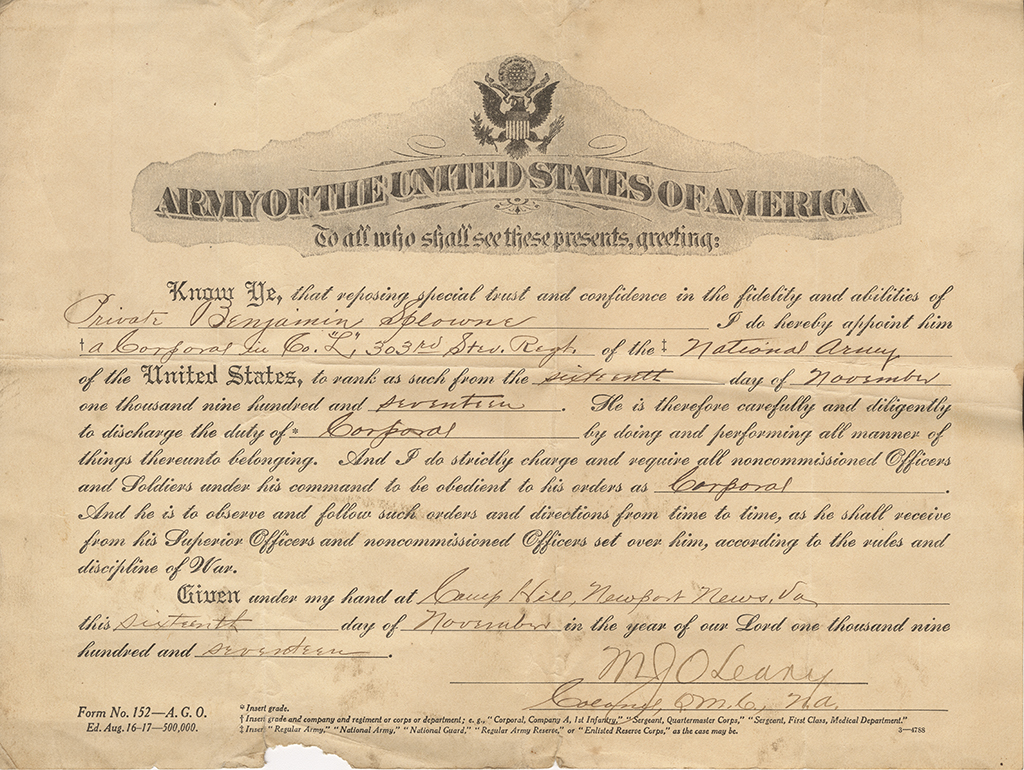 ARMY OF THE UNITED STATES OF AMERICA
To all who shall see these presents, greeting:
Know Ye, that reposing special trust and confidence in the fidelity and abilities of
Private Benjamin Splowne I do hereby appoint him
† a Corporal in Co. "L", 303rd Stev. Regt. of the ‡ National Army
of the United States, to rank as such from the sixteenth day of November
one thousand nine hundred and seventeen. He is therefore carefully and diligently
to discharge the duty of * Corporal by doing and performing all manner of
things thereunto belonging. And I do strictly charge and require all noncommissioned Officers
and Soldiers under his command to be obedient to his orders as Corporal.
And he is to observe and follow such orders and directions from time to time, as he shall receive
from his Superior Officers and noncommissioned Officers set over him, according to the rules and
discipline of War.
Given under my hand at Camp Hill, Newport News, Va
this sixteenth day of November in the year of our Lord one thousand nine
hundred and seventeen.
M J O'Leary
Colonel, Q M C, N.A.
Form No. 152—A. G. O.
Ed. Aug. 16-17—500,000.
* Insert grade.
† Insert grade and company and regiment or corps or department; e. g., "Corporal, Company A, 1st Infantry," "Sergeant, Quartermaster Corps," "Sergeant, First Class, Medical Department."
‡ Insert "Regular Army," "National Army," "National Guard," "Regular Army Reserve," or "Enlisted Reserve Corps," as the case may be.
3—4788